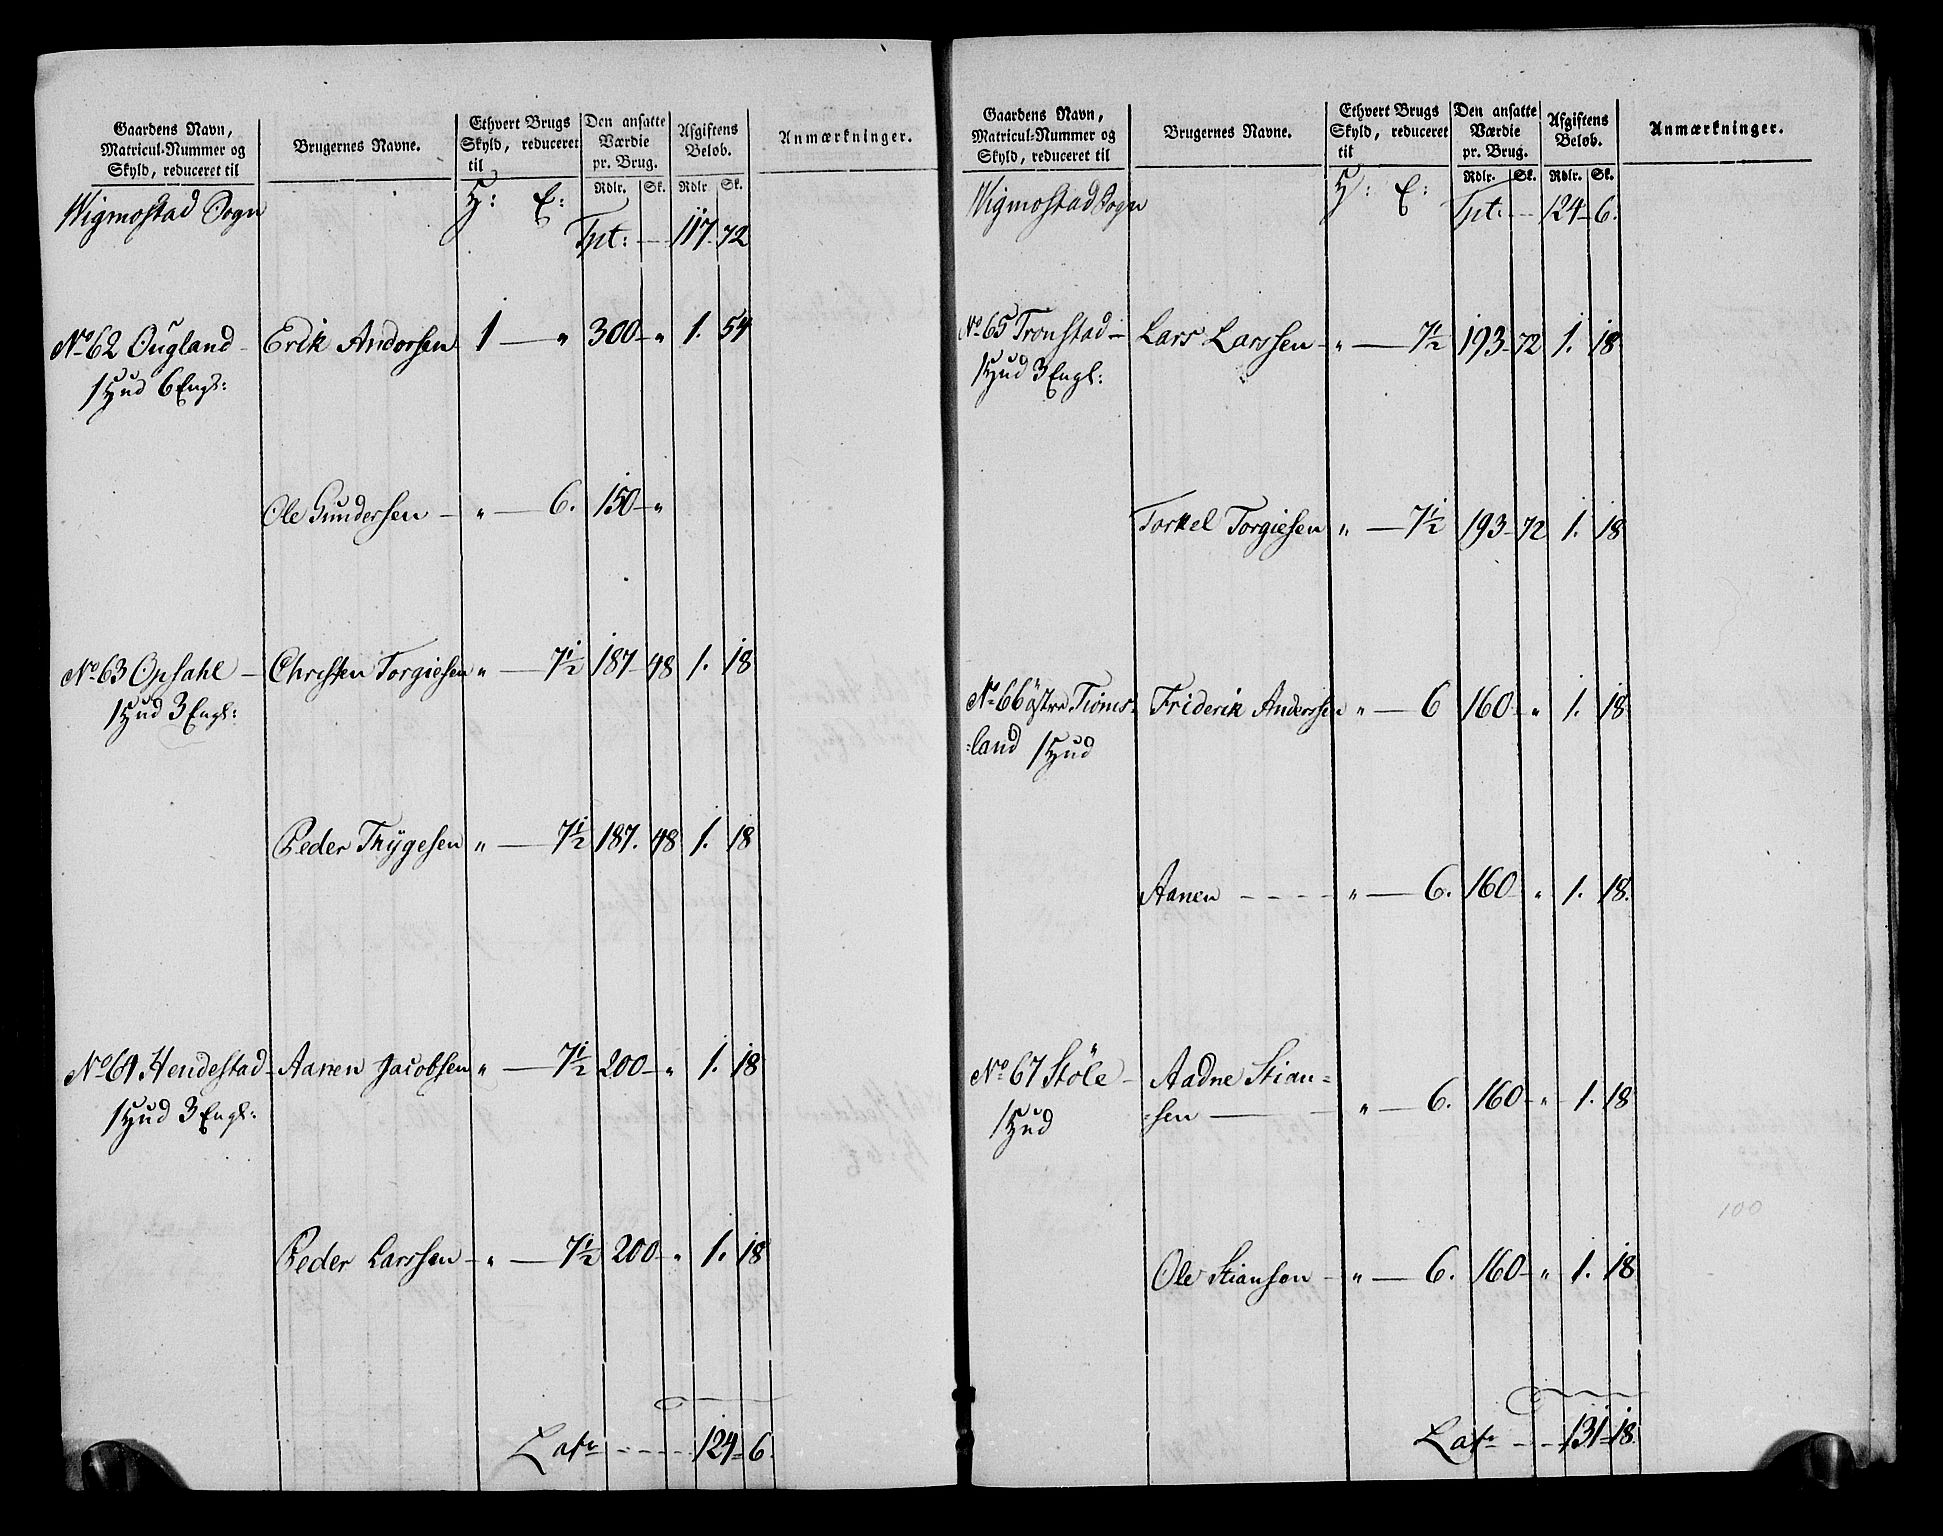 Gaardens Navn, Matricul-Nummer og Skyld, reduceret til | Brugernes Navne. | Ethvert Brugs Skyld, reduceret til | Den ansatte Værdie pr. Brug. | Afgiftens Beløb. | Anmærkninger.
Rdlr. Sk. Rdlr Sk.
Wigmostad Sogn H: E:
Tpt: - - 117 72
No 62 Øugland - Erik Andersen 1 — " 300 - " 1. 54
1 Hud 6 Engl:
Ole Gundersen - " — 6. 150 - "
No 63 Opsahl - Christen Torgiesen " — 7½ 187 - 48 1. 18
1 Hud 3 Engl:
Peder Thÿgesen " — 7½ 187. 48 1. 18
No 64 Hendestad - Aanen Jacobsen " — 7½ 200 - " 1. 18
1 Hud 3 Engl:
Peder Larssen - " — 7½ 200 - " 1. 18
Latr - - - - 124 - 6.
Gaardens Navn, Matricul-Nummer og Skyld, reduceret til | Brugernes Navne. | Ethvert Brugs Skyld, reduceret til | Den ansatte Værdie pr. Brug. | Afgiftens Beløb. | Anmærkninger.
Rdlr. Sk. Rdlr. Sk.
Wigmostad Sogn H: E: Tpt: - - 124 - 6.
No 65 Tronstad — Lars Larssen - " — 7½ 193 - 72 1. 18
1 Hud 3 Engl:
Torkel Torgiesen " — 7½ 193 - 72 1. 18
No 66 östre Tioms= Friderik Anderssen " — 6 160 - " 1. 18
=land 1 Hud
Aanen - - - - " — 6. 160 - " 1. 18.
No 67 Støle - Aadne Stian=
1 Hud =sen — " — 6. 160 - " 1. 18
100
Ole Stiansen - " — 6. 160 - " 1. 18
Latr - - - 131 - 18.